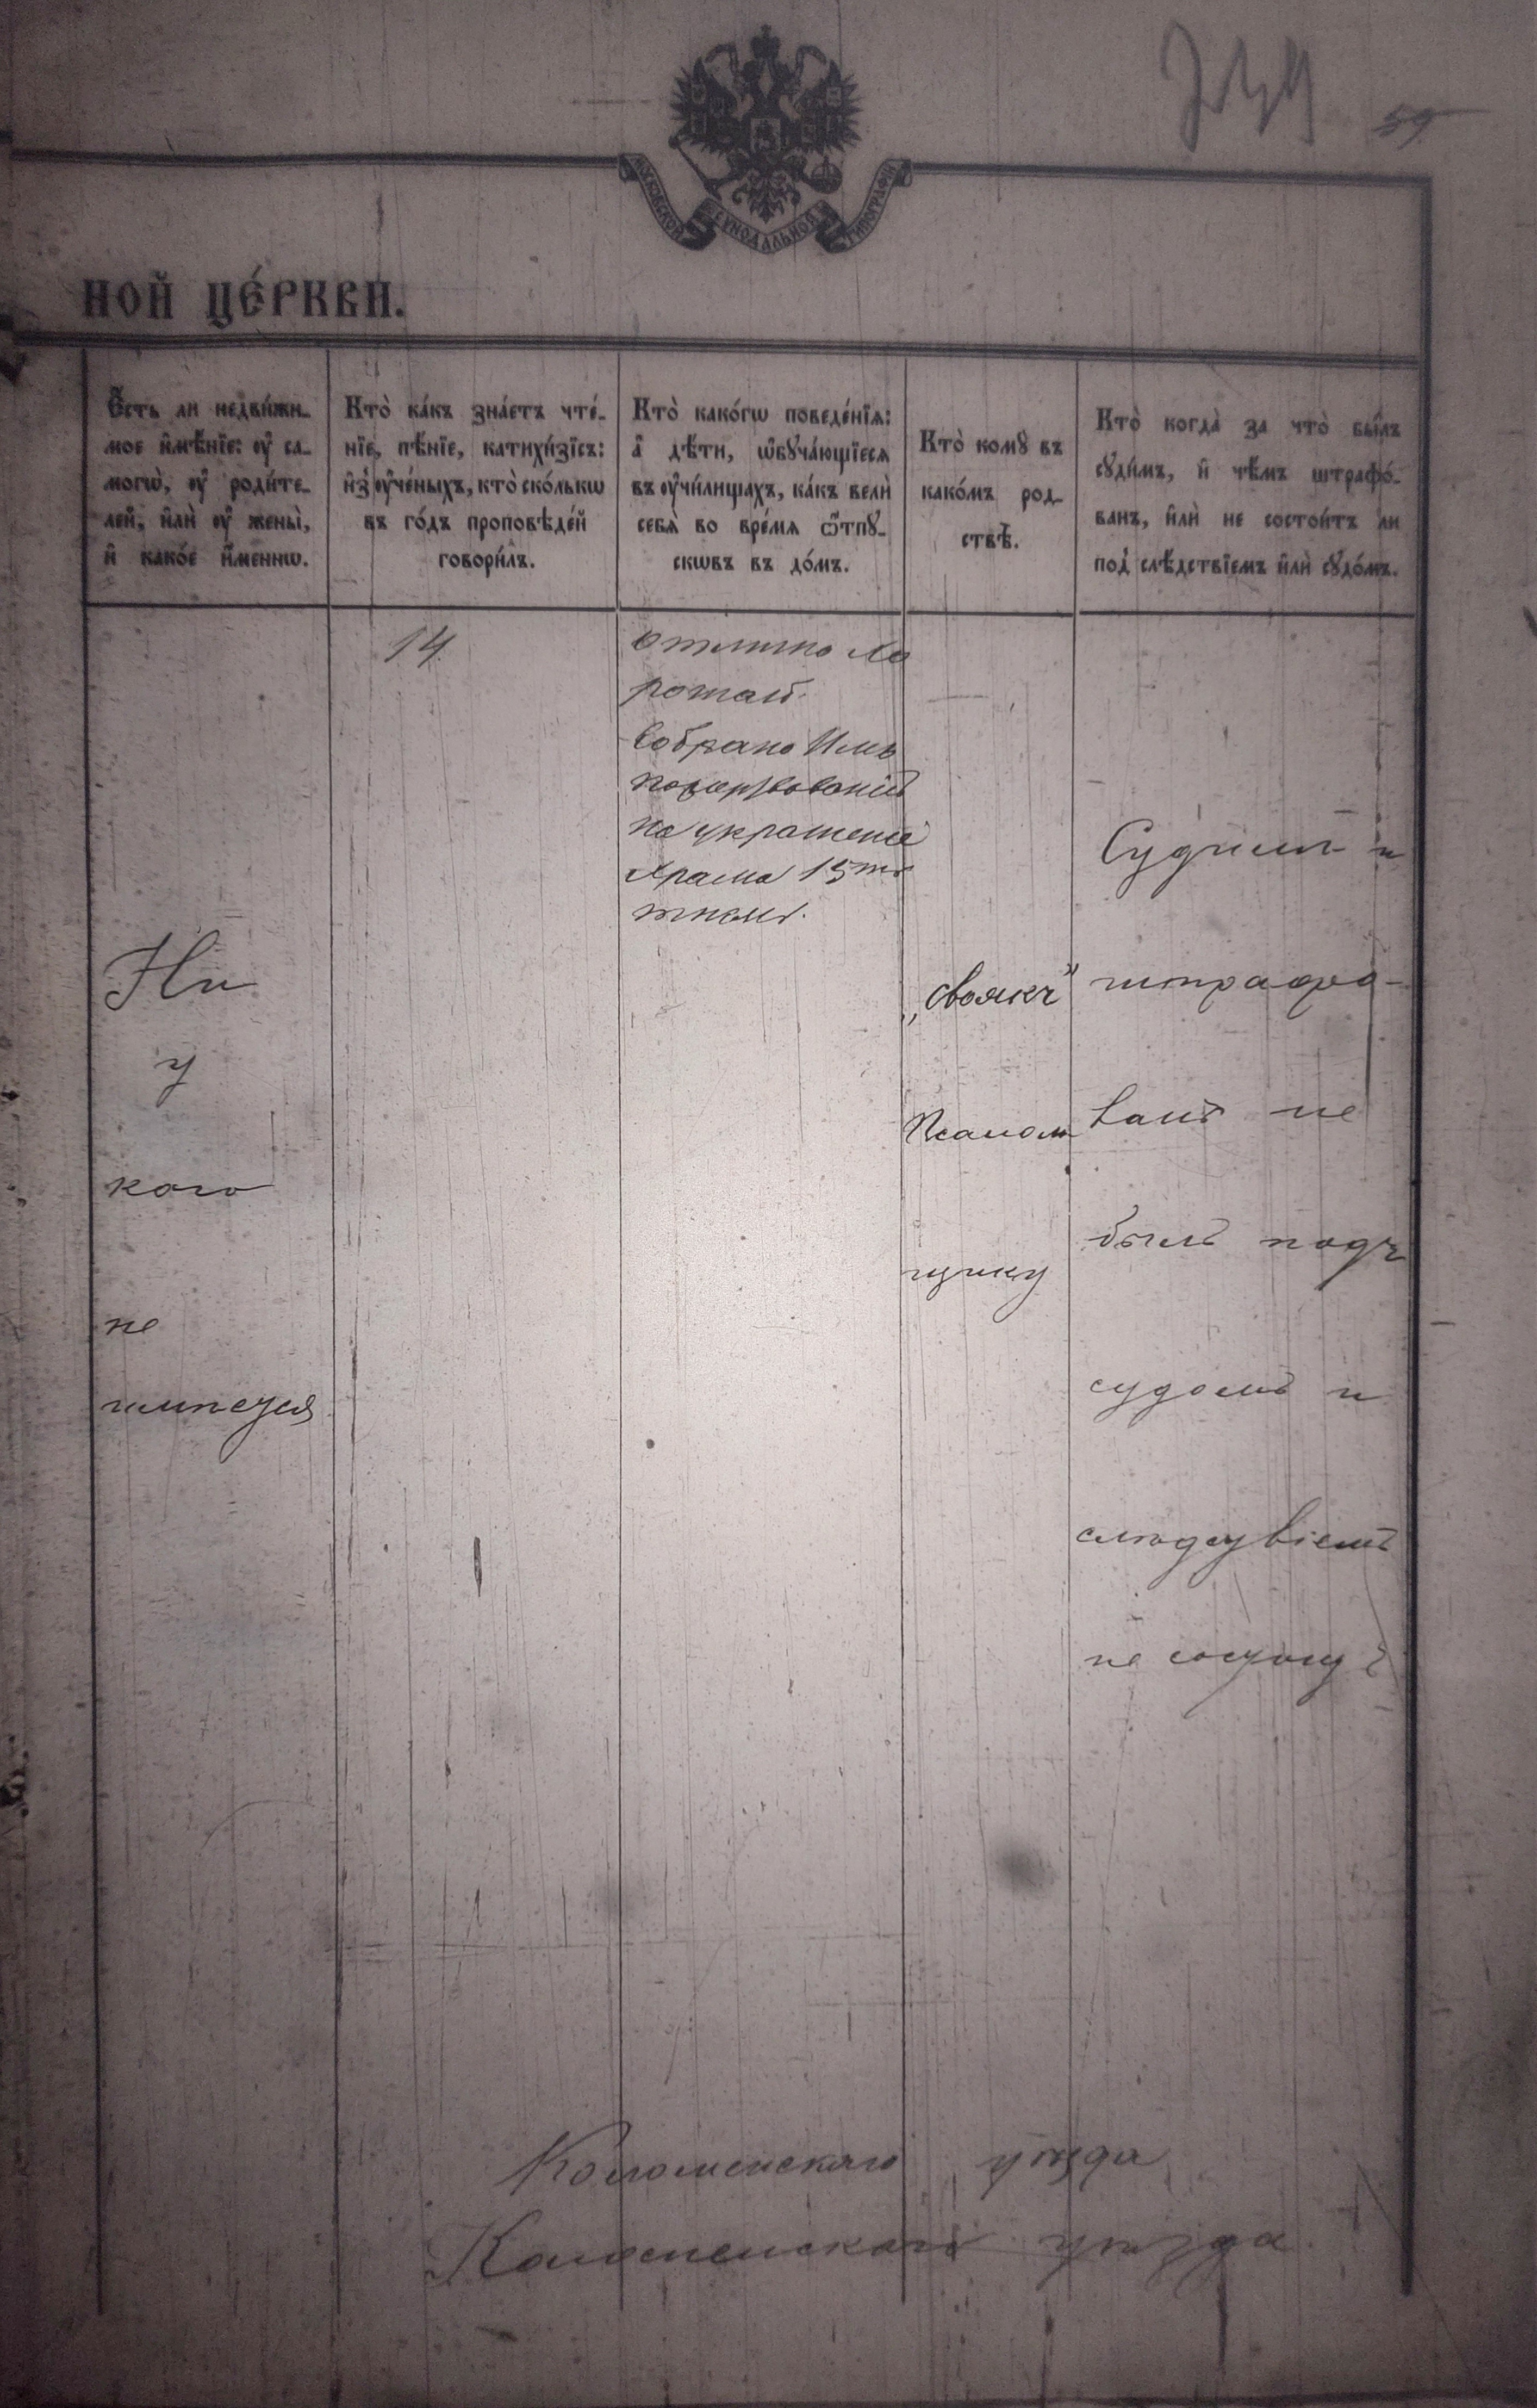 59
МОСКОВСКОЙ СѴНОДАЛЬНОЙ ТИПОГРАФІИ
НОЙ ЦЕ́РКВИ.
Є҆́сть ли недви́жи-
мое и҆мѣ́нїе: ᲂу҆ са-
могѡ̀, ᲂу҆ роди́те-
лей, и҆лѝ ᲂу҆ жены̀,
и҆ како́е и҆́меннѡ.
Кто̀ ка́къ зна́етъ чте́-
нїе, пѣ́нїе, катихи́зїсъ:
и҆з̾ ᲂу҆че́ныхъ, кто̀ ско́лькѡ
въ го́дъ проповѣде́й
говори́лъ.
Кто̀ како́гѡ поведе́нїѧ:
а҆ дѣ́ти, ѡ҆бꙋча́ющїесѧ
въ ᲂу҆чи́лищахъ, ка́къ велѝ
себѧ̀ во вре́мѧ ѿпꙋ-
скѡвъ въ до́мъ.
Кто̀ комꙋ̀ въ
како́мъ род-
ствѣ̀.
Кто̀ когда̀ за что̀ бы́лъ
сꙋди́мъ, и҆ чѣ́мъ штрафо́-
ванъ, и҆лѝ не состои́тъ ли
под̾ слѣ́дствїемъ и҆лѝ сꙋдо́мъ.
Ни
у
кого
не
имѣется
14.
отлично хо
рошаго.
Собрано Имъ
пожертвованій
на украшеніе
храма 15ть
„Своякъ"
Псалом
щику
Судимъ и
штрафо-
ванъ не
былъ подъ
судомъ и
слѣдствіемъ
не состоитъ
Коломенскаго уѣзда
Коломенскаго уѣзда